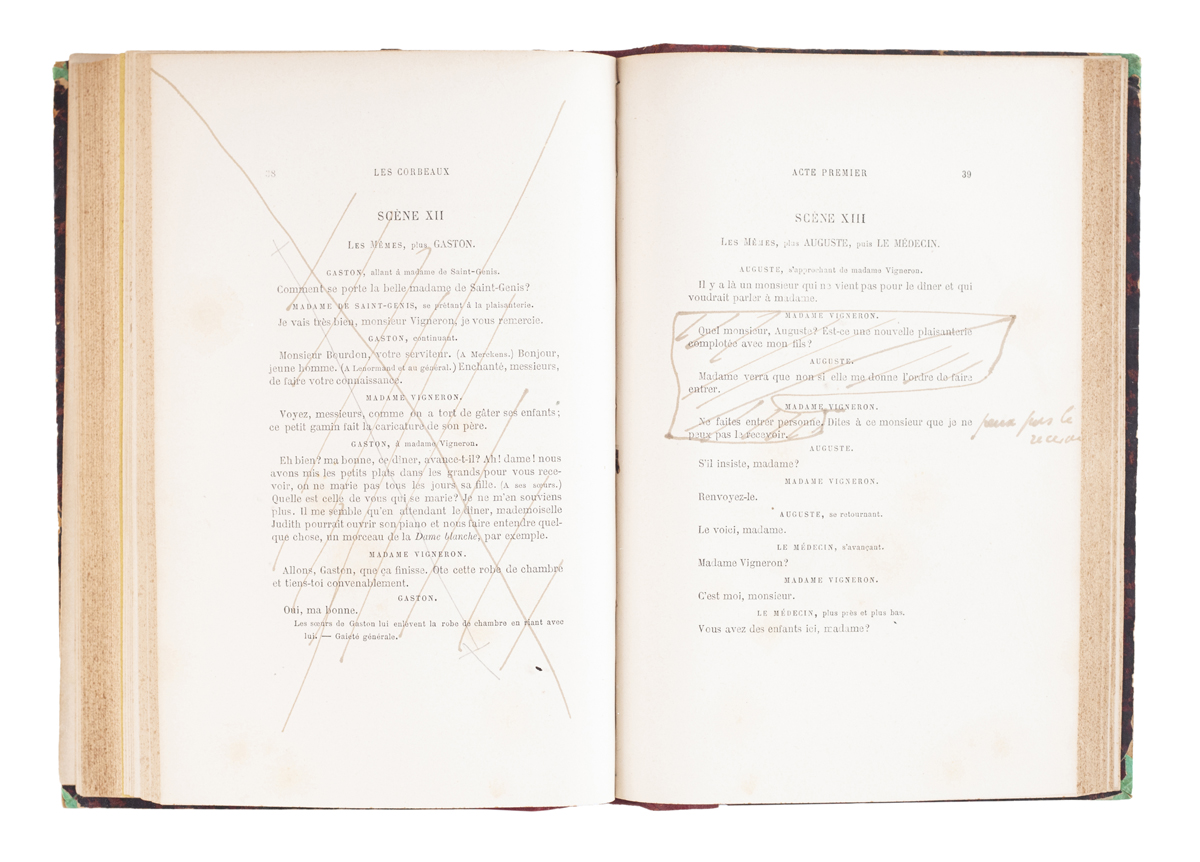 38 LES CORBEAUX
SCÈNE XII
LES MÊMES, plus GASTON.
GASTON, allant à madame de Saint-Genis.
Comment se porte la belle madame de Saint-Genis?
MADAME DE SAINT-GENIS, se prêtant à la plaisanterie.
Je vais très bien, monsieur Vigneron, je vous remercie.
GASTON, continuant.
Monsieur Bourdon, votre serviteur. (A Merckens.) Bonjour,
jeune homme. (A Lenormand et au général.) Enchanté, messieurs,
de faire votre connaissance.
MADAME VIGNERON.
Voyez, messieurs, comme on a tort de gâter ses enfants;
ce petit gamin fait la caricature de son père.
GASTON, à madame Vigneron.
Eh bien? ma bonne, ce dîner, avance-t-il? Ah! dame! nous
avons mis les petits plats dans les grands pour vous rece-
voir, on ne marie pas tous les jours sa fille. (A ses sœurs.)
Quelle est celle de vous qui se marie? Je ne m'en souviens
plus. Il me semble qu'en attendant le dîner, mademoiselle
Judith pourrait ouvrir son piano et nous faire entendre quel-
que chose, un morceau de la Dame blanche, par exemple.
MADAME VIGNERON.
Allons, Gaston, que ça finisse. Ote cette robe de chambre
et tiens-toi convenablement.
GASTON.
Oui, ma bonne.
Les sœurs de Gaston lui enlèvent la robe de chambre en riant avec
lui. — Gaieté générale.
ACTE PREMIER 39
SCÈNE XIII
LES MÊMES, plus AUGUSTE, puis LE MÉDECIN.
AUGUSTE, s'approchant de madame Vigneron.
Il y a là un monsieur qui ne vient pas pour le dîner et qui
voudrait parler à madame.
MADAME VIGNERON.
Quel monsieur, Auguste? Est-ce une nouvelle plaisanterie
complotée avec mon fils?
AUGUSTE.
Madame verra que non si elle me donne l'ordre de faire
entrer.
MADAME VIGNERON.
Ne faites entrer personne. Dites à ce monsieur que je ne
peux pas le recevoir.
pas le
AUGUSTE.
S'il insiste, madame?
MADAME VIGNERON.
Renvoyez-le.
AUGUSTE, se retournant.
Le voici, madame.
LE MÉDECIN, s'avançant.
Madame Vigneron?
MADAME VIGNERON.
C'est moi, monsieur.
LE MÉDECIN, plus près et plus bas.
Vous avez des enfants ici, madame?